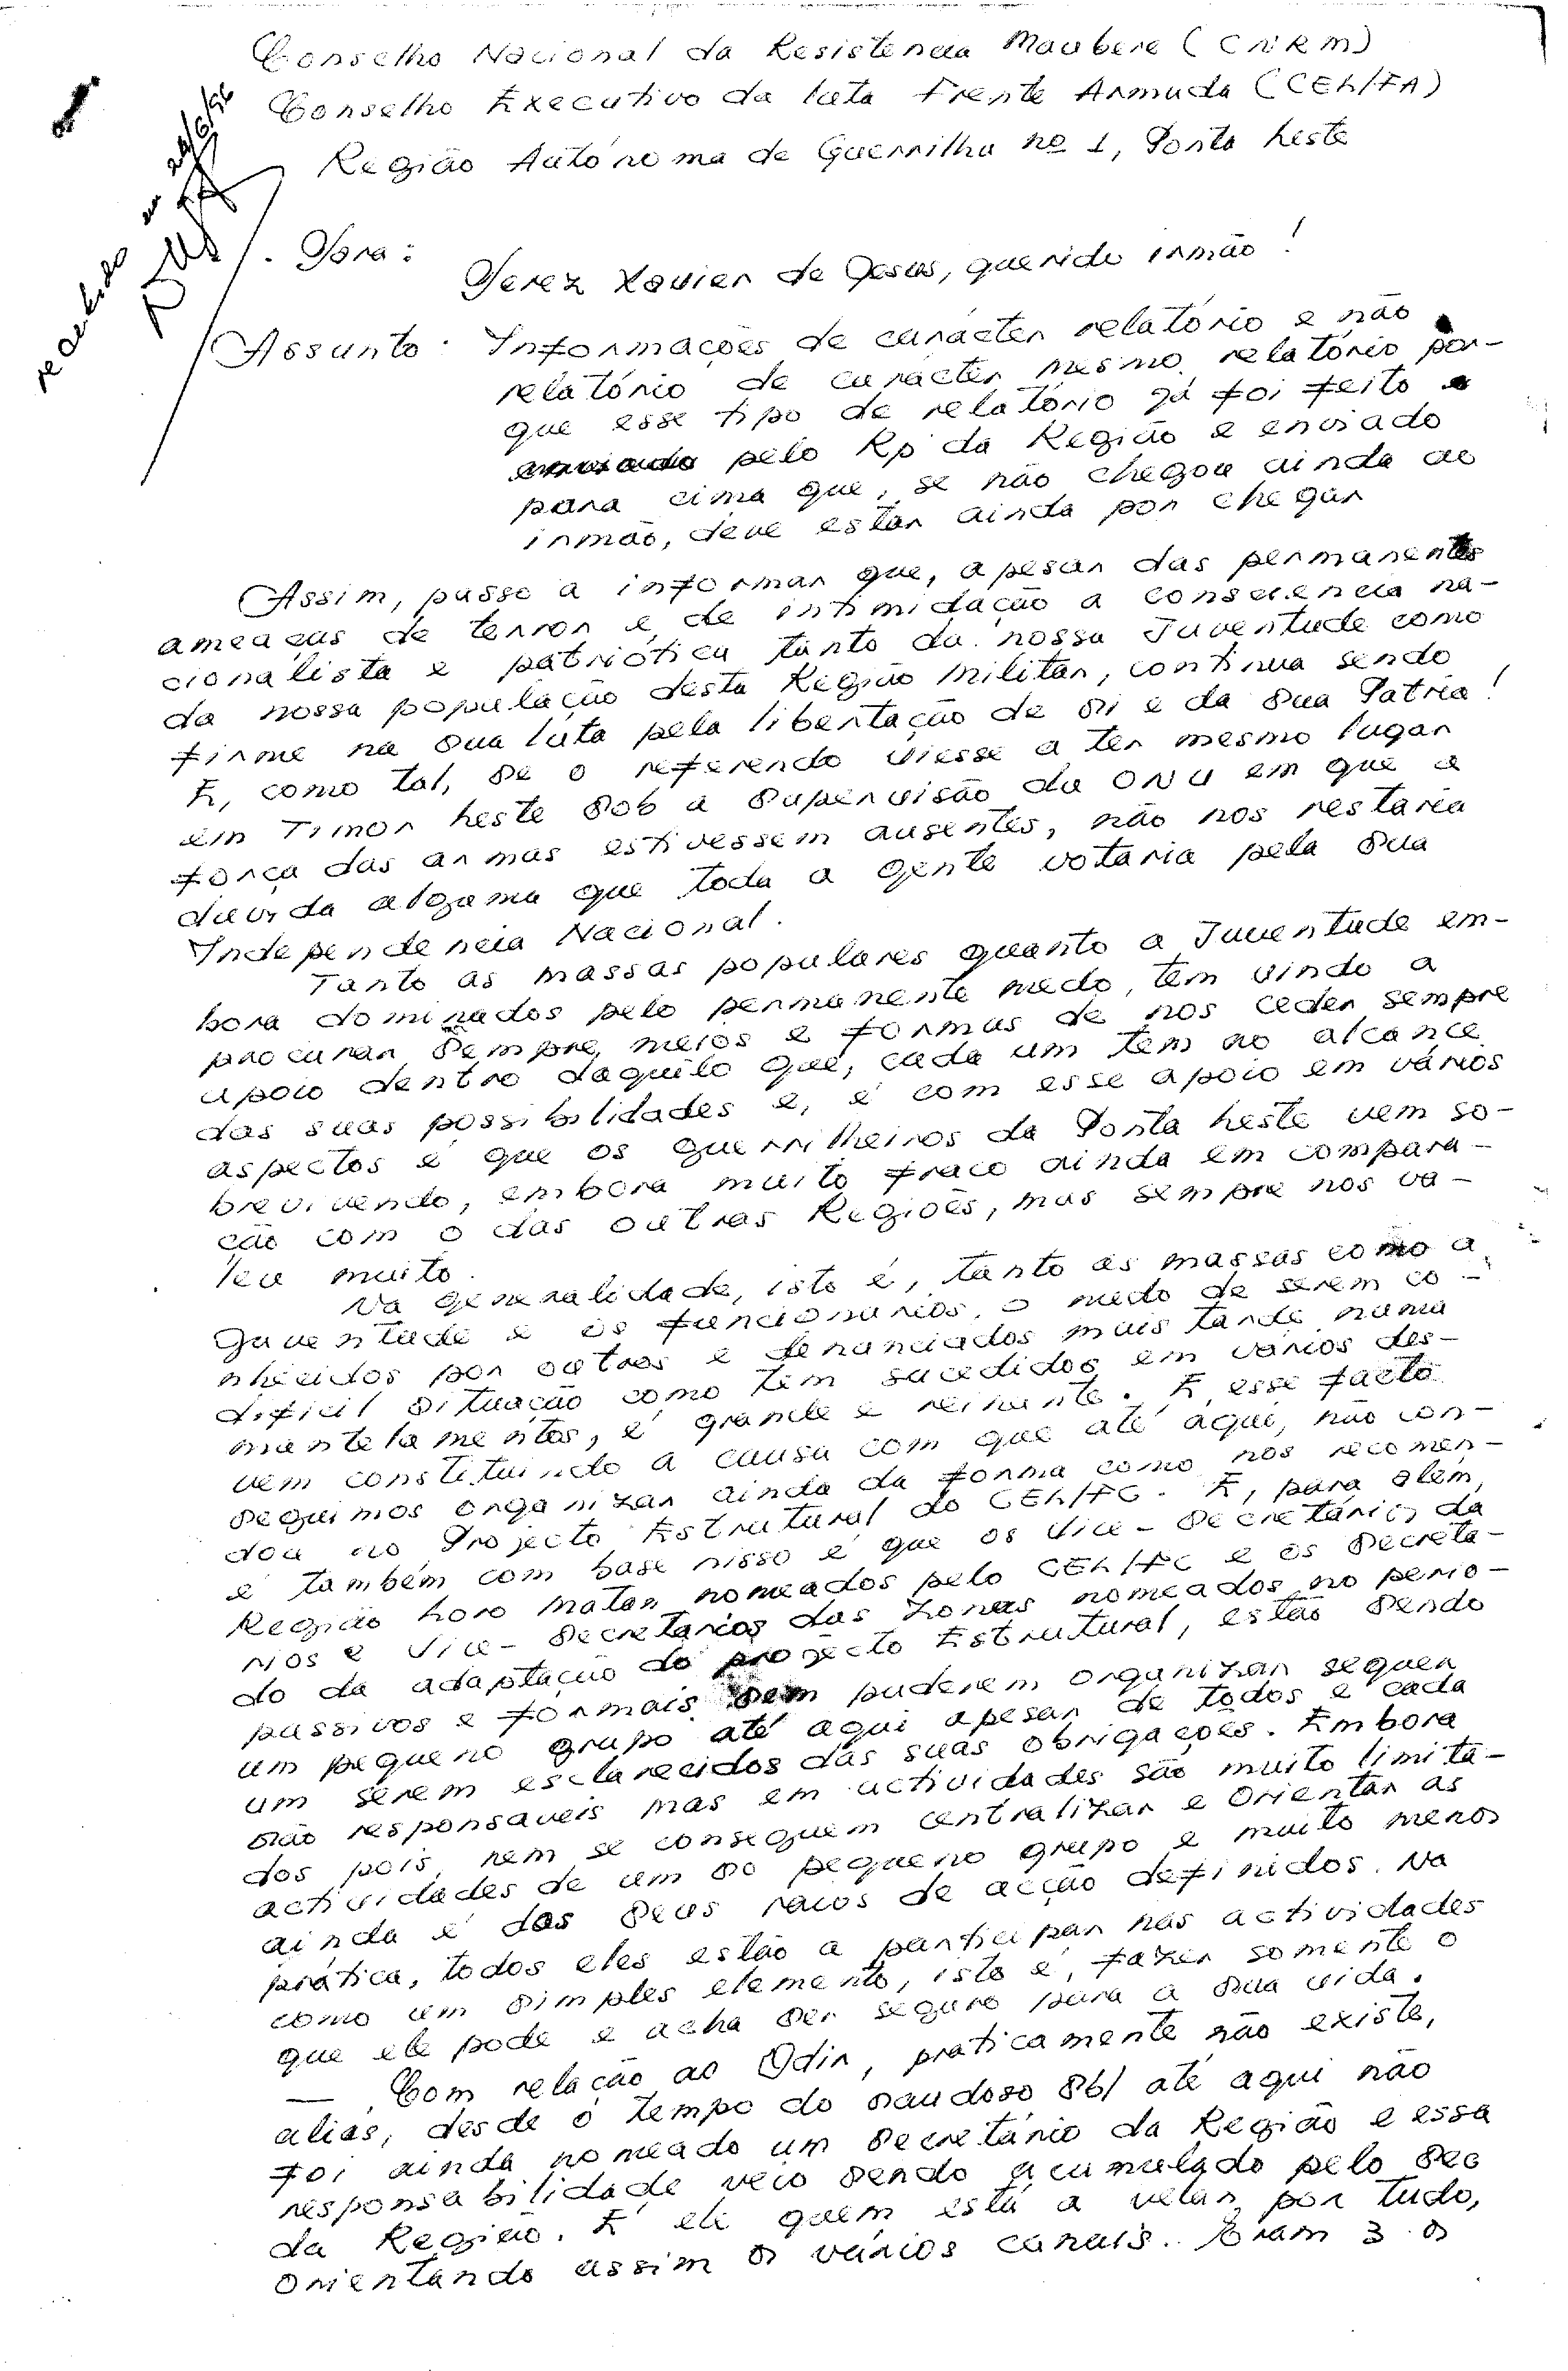 Conselho Nacional da Resistencia Maubere (CNRM)
Conselho Executivo da luta Frente Armada (CEL/FA)
Região Autónoma de Guerrilha nº 1, Ponta Leste
recebido em 24/6/96
Para:
Perez Xavier de Jesus, querido irmão!
Assunto: Informações de carácter relatório e não
relatório de carácter mesmo relatório por-
que esse tipo de relatório já foi feito
pelo Rp da Região e enviado
para cima que, se não chegou ainda ao
irmão, deve estar ainda por chegar
Assim, passo a informar que, apesar das permanentes
ameaças de terror e de intimidação a consciencia na-
cionalista e patriótica tanto da nossa Juventude como
da nossa população desta Região Militar, continua sendo
firme na sua luta pela libertação de si e da sua Patria!
E, como tal, se o referendo viesse a ter mesmo lugar
em Timor Leste sob a supervisão da ONU em que a
força das armas estivessem ausentes, não nos restaria
duvida alguma que toda a gente votaria pela sua
Independencia Nacional.
Tanto as massas populares quanto a Juventude em-
bora dominados pelo permanente medo, têm vindo a
procurar sempre, meios e formas de nos ceder sempre
apoio dentro daquilo que, cada um tem ao alcance
das suas possibilidades e, é com esse apoio em vários
aspectos é que os guerrilheiros da Ponta Leste vem so-
brevivendo, embora muito fraco ainda em compara-
ção com o das outras Regiões, mas sempre nos va-
leu muito.
Na generalidade, isto é, tanto as massas como a
Juventude e os funcionários, o medo de serem co-
nhecidos por outros e denunciados mais tarde numa
dificil situação como têm sucedidos em vários des-
mantelamentos, é grande e reinante. E, esse facto
vem constituindo a causa com que até aqui, não con-
seguimos organizar ainda da forma como nos recomen-
dou no Projecto Estrutural do CEL/FC. E, para além,
é também com base nisso é que os Vice-Secretários da
Região Loro Matan nomeados pelo CEL/FC e os Secretá-
rios e Vice-Secretarios das Zonas nomeados no perio-
do da adaptação do projecto Estrutural, estão sendo
passivos e formais sem puderem organizar sequer
um pequeno grupo até aqui apesar de todos e cada
um serem esclarecidos das suas obrigações. Embora
são responsaveis mas em actividades são muito limita-
dos pois, nem se conseguem centralizar e orientar as
actividades de um só pequeno grupo e muito menos
ainda é dos seus raios de acção definidos. Na
prática, todos eles estão a participar nas actividades
como um simples elemento, isto é, fazer somente o
que ele pode e acha ser seguro para a sua vida.
— Com relação ao Odir, praticamente não existe,
aliás, desde o tempo do saudoso 86/ até aqui não
foi ainda nomeado um Secretário da Região e essa
responsabilidade veio sendo acumulado pelo Sec
da Região. E ele quem está a velar por tudo,
orientando assim os vários canais. Eram 3 os